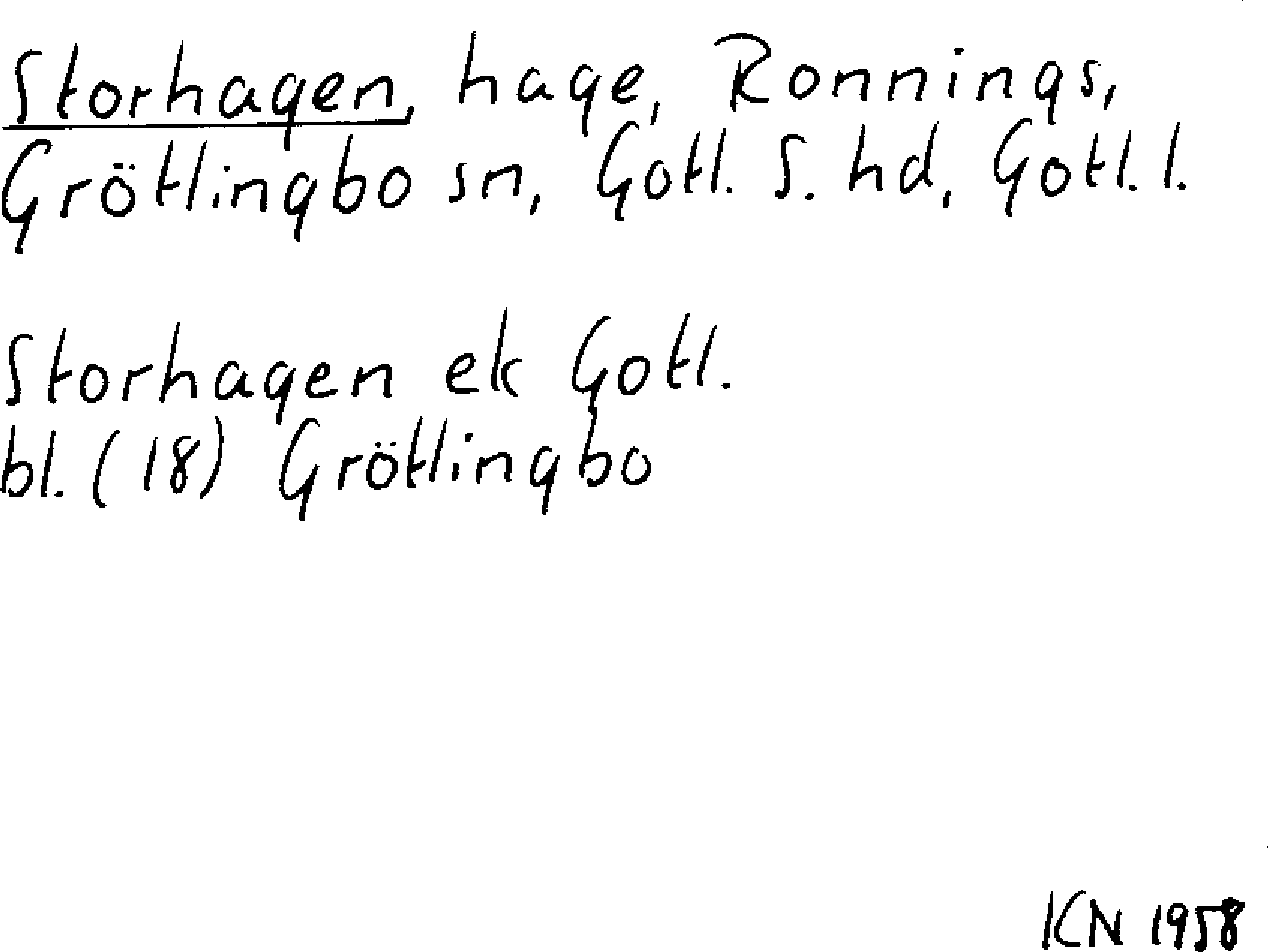 Storhagen, hage, Ronnings,
Grötlingbo sn, Gotl. S. hd, Gotl. l.
Storhagen ek Gotl.
bl. (18) Grötlingbo
KN 1958